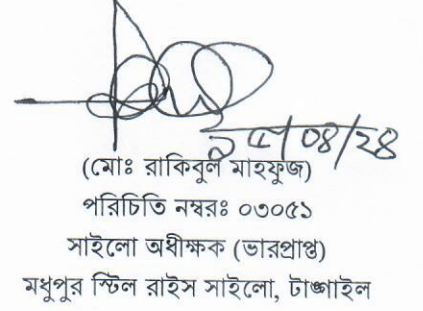 ১৫/০৪/২৪
(মোঃ রাকিবুল মাহফুজ)
পরিচিতি নম্বরঃ ০৩০৫১
সাইলো অধীক্ষক (ভারপ্রাপ্ত)
মধুপুর স্টিল রাইস সাইলো, টাঙ্গাইল